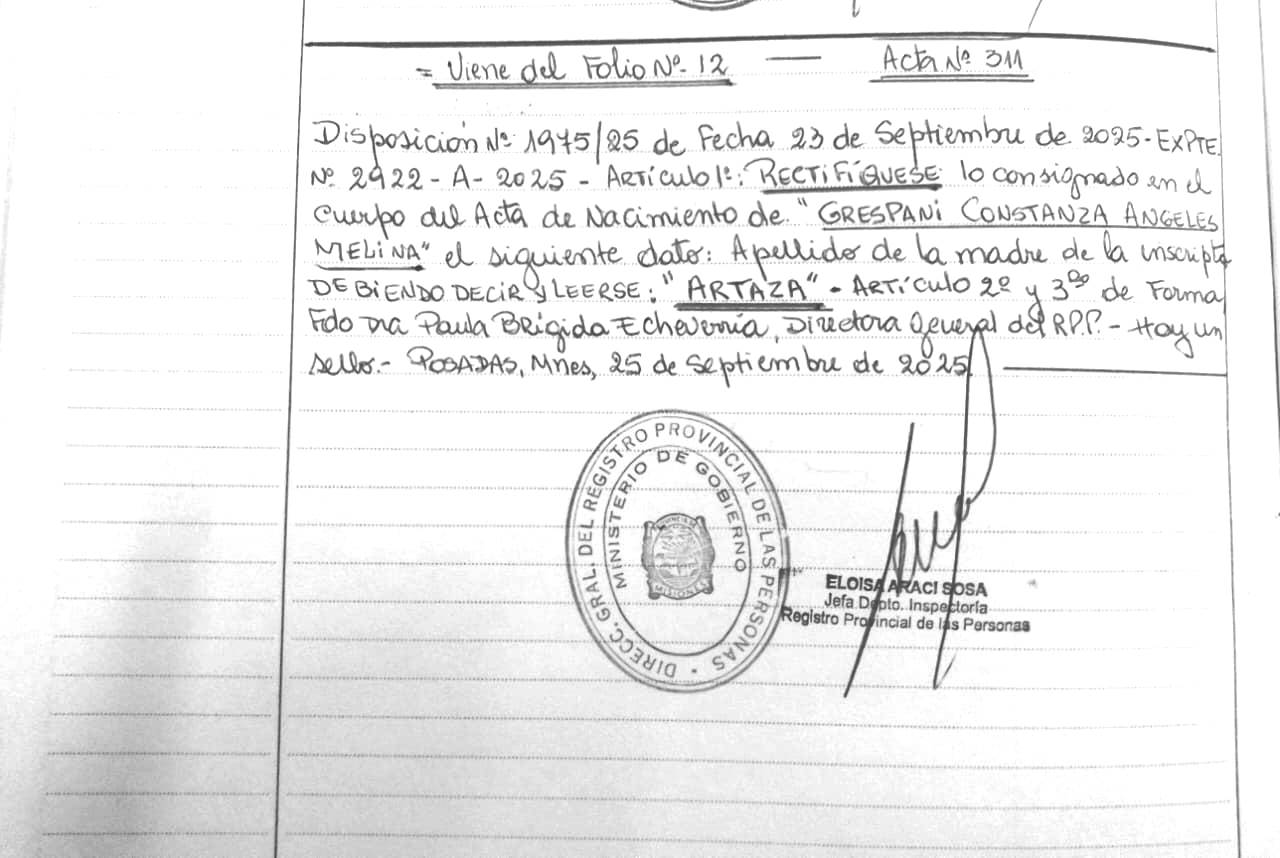 = Viene del Folio Nº 12 — Acta Nº 311
Disposición Nº 1975/25 de Fecha 23 de Septiembre de 2025 - EXPTE.
Nº 2922 - A - 2025 - ARTículo 1º: RECTIFÍQUESE lo consignado en el
cuerpo del Acta de Nacimiento de "GRESPANI CONSTANZA ANGELES
MELINA" el siguiente dato: Apellido de la madre de la inscripta
DEBIENDO DECIR y LEERSE: "ARTAZA" - ARTÍCULO 2º y 3º de Forma
Fdo Dra Paula BRígida Echeverría, Directora General del R.P.P. - Hay un
sello.- POSADAS, Mnes, 25 de Septiembre de 2025.
DIRECC. GRAL. DEL REGISTRO PROVINCIAL DE LAS PERSONAS
MINISTERIO DE GOBIERNO
PROVINCIA DE
MISIONES
ELOISA ARACI SOSA
Jefa Depto. Inspectoría
Registro Provincial de las Personas